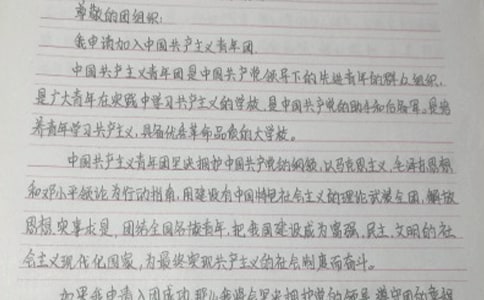 尊敬的团组织:
我申请加入中国共产主义青年团.
中国共产主义青年团是中国共产党领导下的先进青年的群众组织,
是广大青年在实践中学习共产主义的学校,是中国共产党的助手和后备军。是培
养青年学习共产主义,具备优秀革命品质的大学校。
中国共产主义青年团坚决拥护中国共产党的纲领,以马克思主义,毛泽东思想
和邓小平理论为行动指南,用建设有中国特色社会主义的理论武装全团,解放
思想,实事求是,团结全国各族青年,把我国建设成为富强,民主,文明的社
会主义现代化国家,为最终实现共产主义的社会制度而奋斗。
如果我申请入团成功,那么我将会坚决拥护党的领导,遵守团的章程